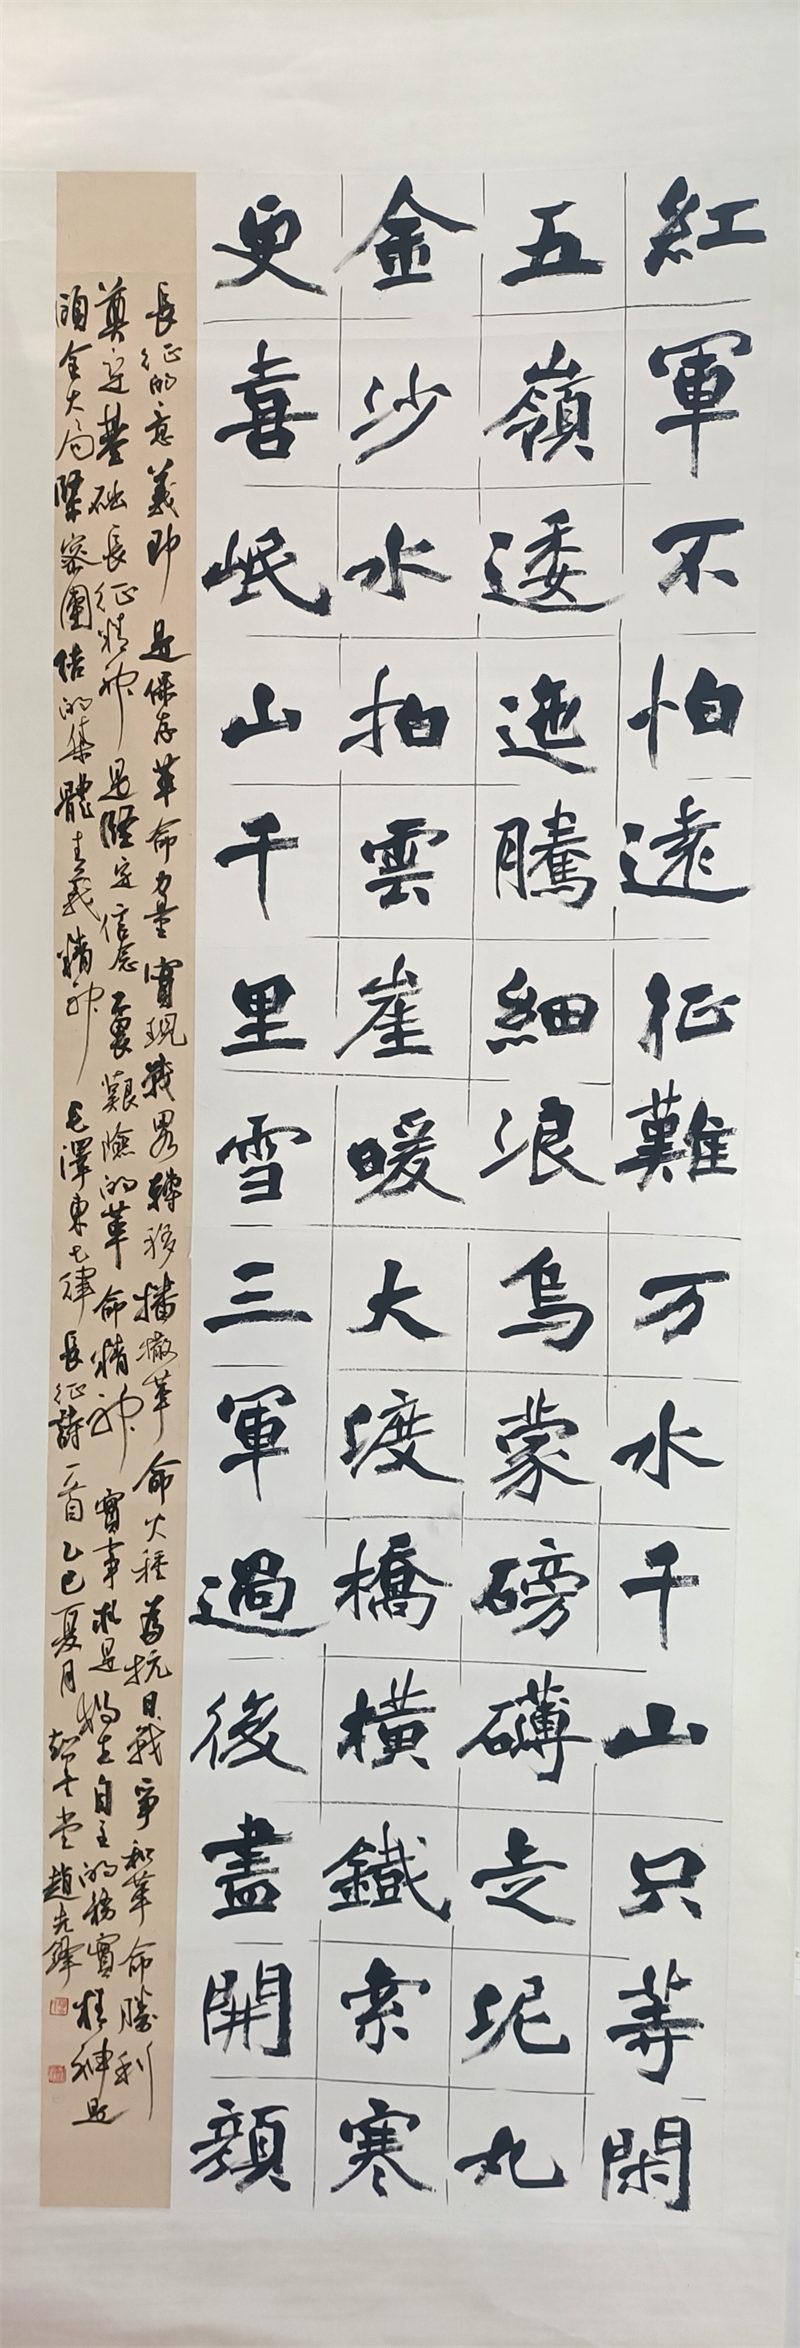 紅軍不怕遠征難万水千山只等閑
五嶺逶迤騰細浪烏蒙磅礴走泥丸
金沙水拍雲崖暖大渡橋橫鐵索寒
更喜岷山千里雪三軍過後盡開顏
長征的意義即是保存革命力量實現戰略轉移播撒革命火種為抗日戰爭和革命勝利
奠定基础長征精神是堅定信念不畏艱險的革命精神實事求是獨立自主的務實精神是
顧全大局緊密團結的集體主義精神毛澤東七律長征詩一首乙巳夏月趙先鋒